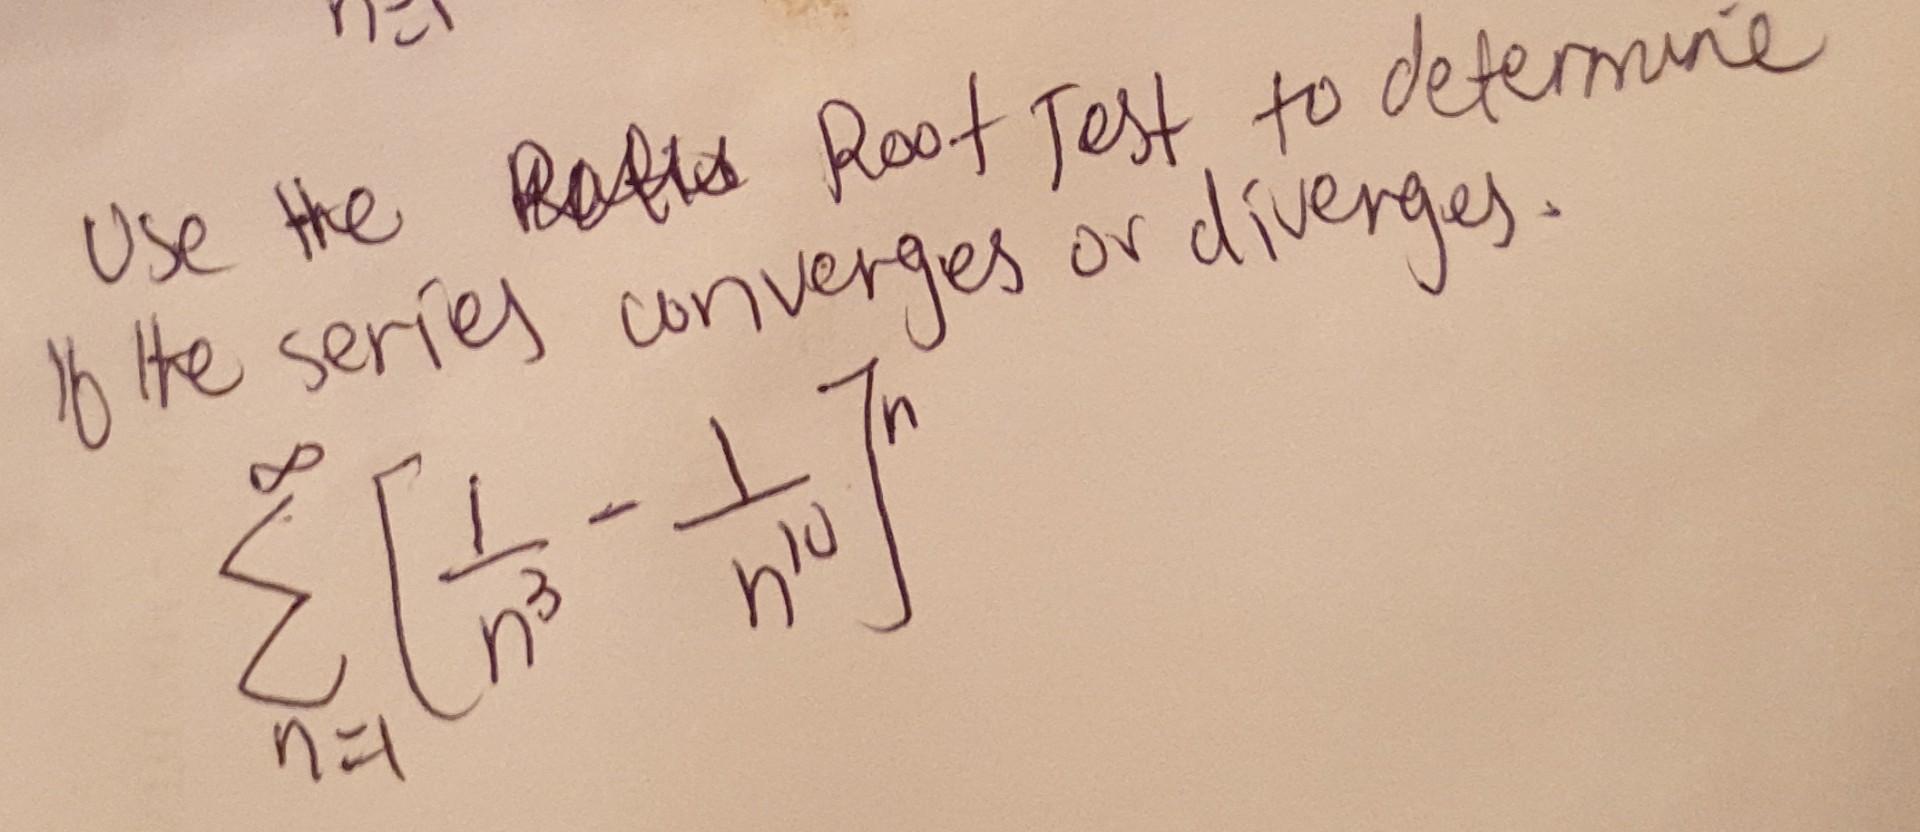 n=1
Use the Root Test to determine
if the series converges or diverges.
∞
∑ [1/n³ - 1/n¹⁰]ⁿ
n=1